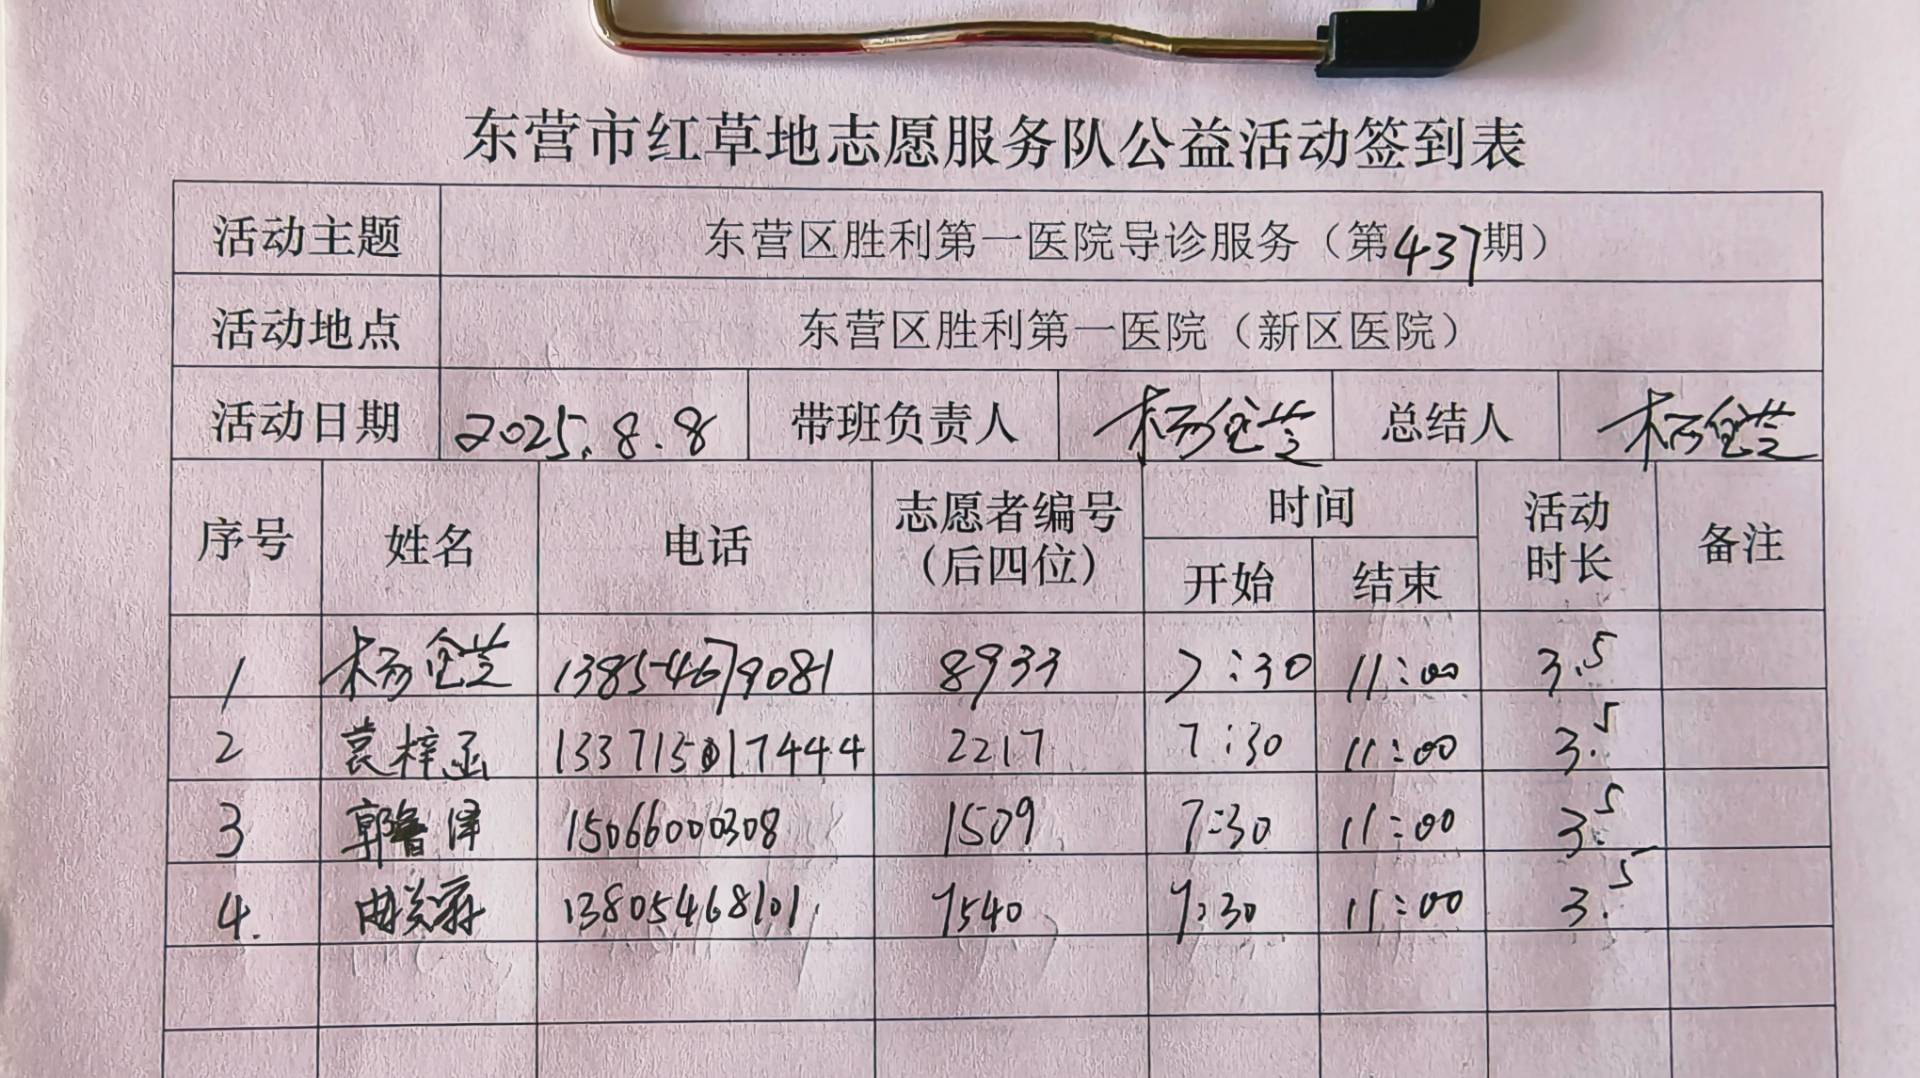 东营市红草地志愿服务队公益活动签到表
活动主题 东营区胜利第一医院导诊服务（第437期）
活动地点 东营区胜利第一医院（新区医院）
活动日期 2025.8.8 带班负责人 杨 芝 总结人 杨 芝
序号 姓名 电话 志愿者编号（后四位） 时间 开始 结束 活动时长 备注
1 杨 芝 13854679081 8933 7:30 11:00 3.5
2 袁梓函 2217 7:30 11:00 3.5
3 郭鲁泽 15066000308 1509 7:30 11:00 3.5
4. 曲 13805468101 7540 7:30 11:00 3.5